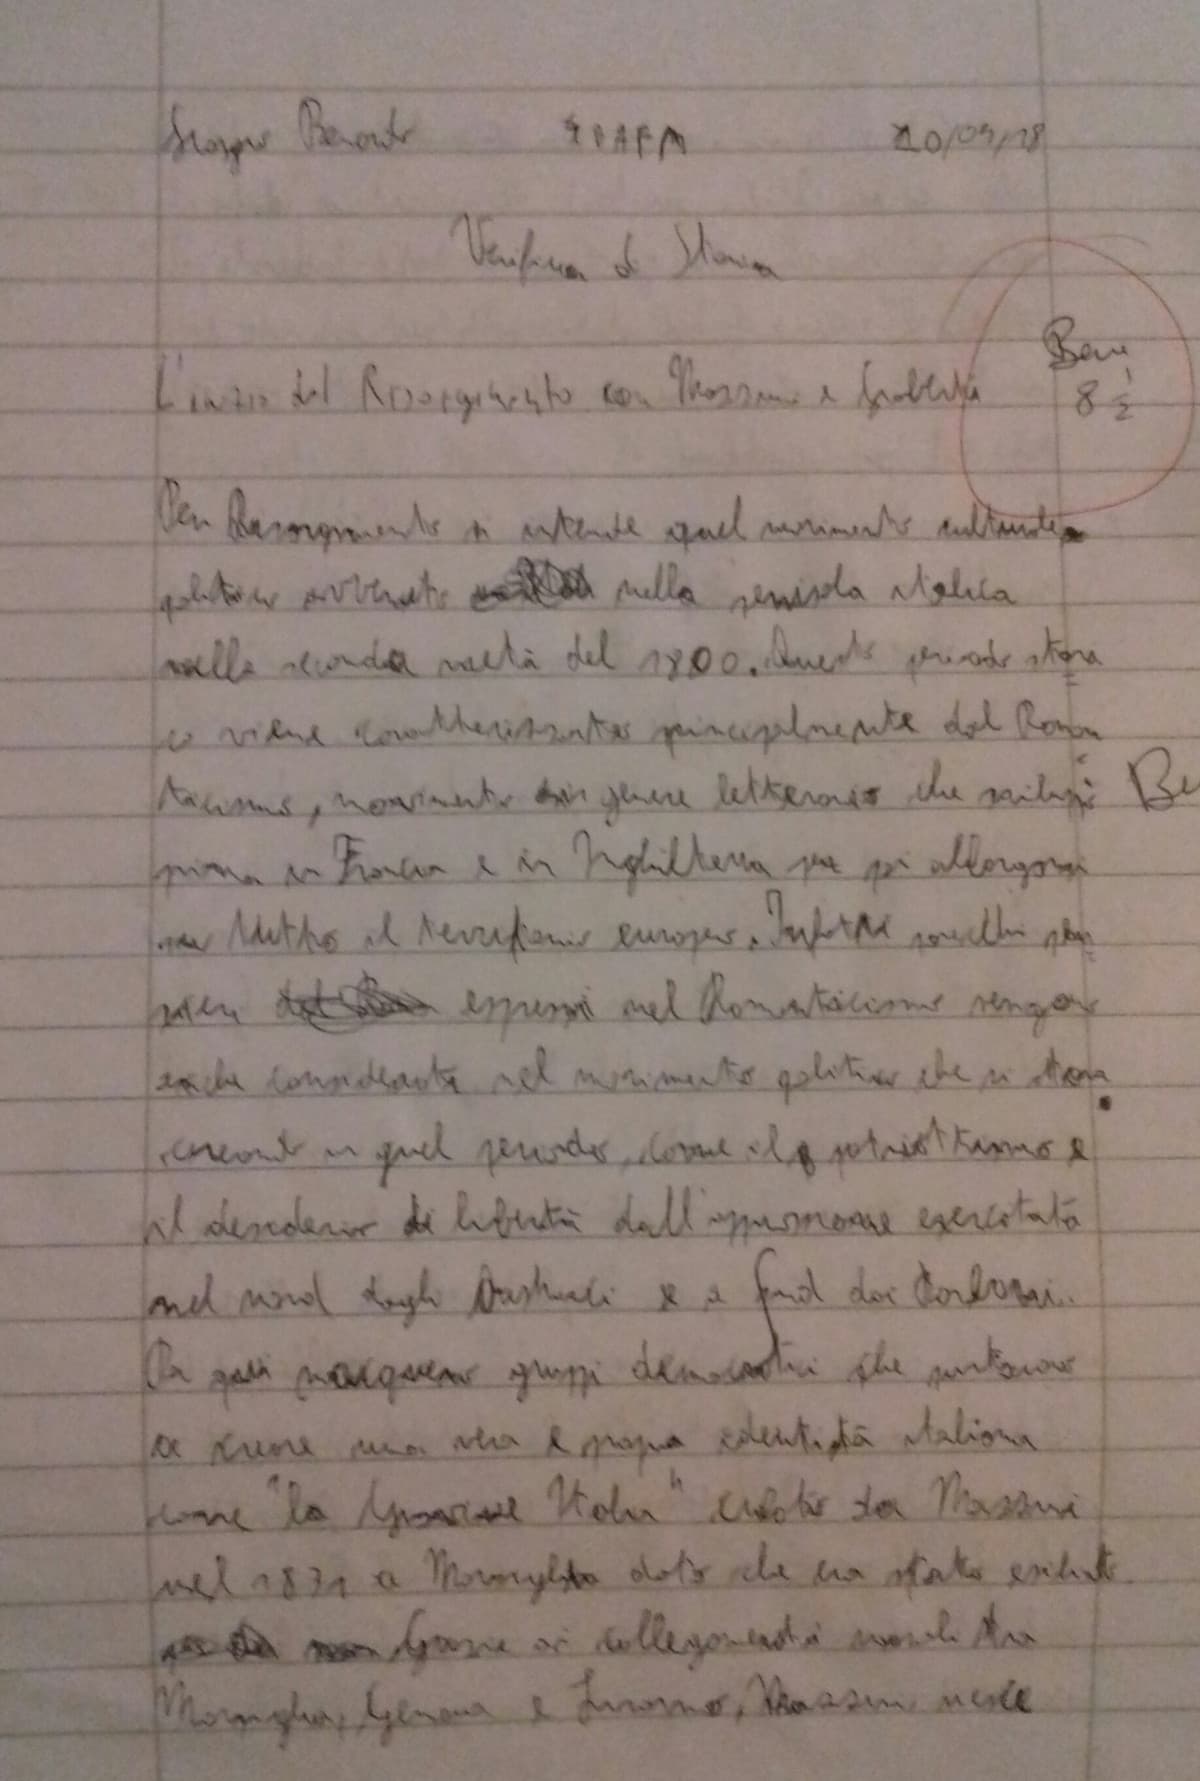 20/04/18
Verifica di Storia
L'inizio del Risorgimento con Mazzini e Gioberti
Bene
8 1/2
Per Risorgimento si intende quel movimento culturale
politico avvenuto nella penisola italica
nella seconda metà del 1800. Questo periodo stori
co viene caratterizzato principalmente dal Roman
ticismo, movimento in genere letterario che sviluppò
prima in Francia e in Inghilterra per poi allargarsi
per tutto il territorio europeo. Infatti parecchi pen
sieri espressi nel Romanticismo vengono
anche considerati nel movimento politico che si stava
creando in quel periodo, come il patriottismo e
il desiderio di libertà dall'oppressione esercitata
nel nord dagli Austriaci e a sud dai Borboni.
Da qui nacquero gruppi democratici che puntarono
a creare una vera e propria identità italiana
come "la Giovine Italia" creata da Mazzini
nel 1831 a Marsiglia dato che era stato esiliato.
Grazie ai collegamenti navali tra
Marsiglia, Genova e Livorno, Mazzini riesce